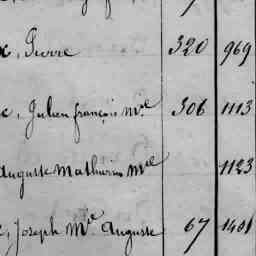 Pierre 320 969
Julien françois Mie 306 1113
Auguste Mathurin Mie 1123
Joseph Mie Auguste 67 1401